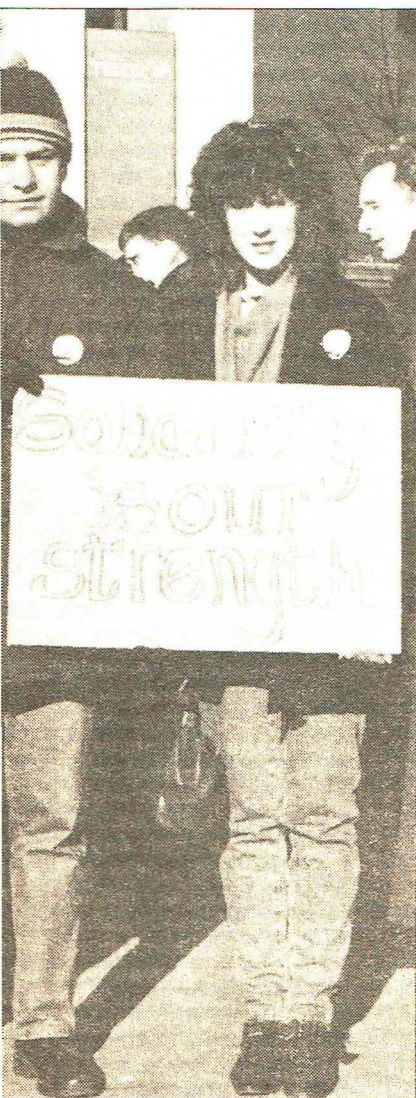 Solidarity
is our
strength